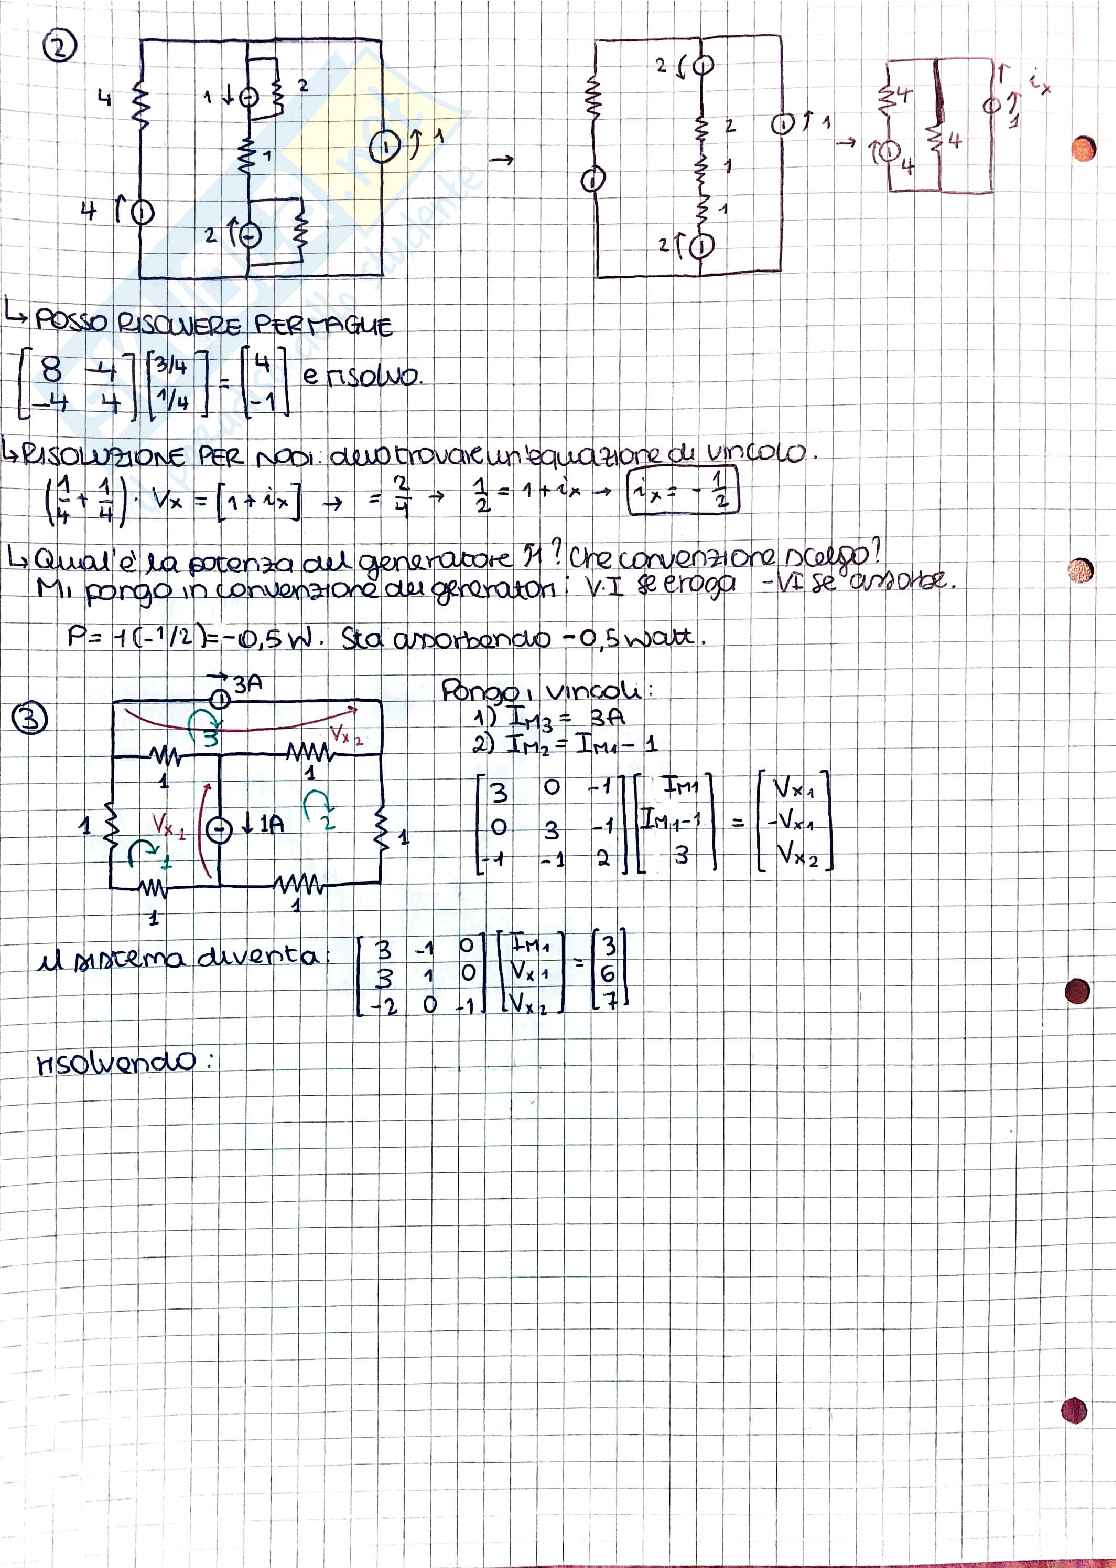 2
4 1 2 1 1 4 2
2 2 1 1 1 2
4 4 4 1 ix
↳ POSSO RISOLVERE PER MAGLIE
[8 -4; -4 4] [3/4; 1/4] = [4; -1] e risolvo.
↳ RISOLUZIONE PER NODI: devo trovare un'equazione di vincolo.
(1/4 + 1/4) · Vx = [1 + ix] → = 2/4 → 1/2 = 1 + ix → ix = -1/2
↳ Qual'è la potenza del generatore 1? Che convenzione scelgo?
Mi pongo in convenzione dei generatori: V·I se eroga -VI se assorbe.
P = 1(-1/2) = -0,5 W. Sta assorbendo -0,5 watt.
3
3A
3 Vx2
1 1
1 Vx1 ↓1A 2 1
1
1 1
Pongo i vincoli:
1) IM3 = 3A
2) IM2 = IM1 - 1
[3 0 -1; 0 3 -1; -1 -1 2] [IM1; IM1-1; 3] = [Vx1; -Vx1; Vx2]
il sistema diventa: [3 -1 0; 3 1 0; -2 0 -1] [IM1; Vx1; Vx2] = [3; 6; 7]
risolvendo: